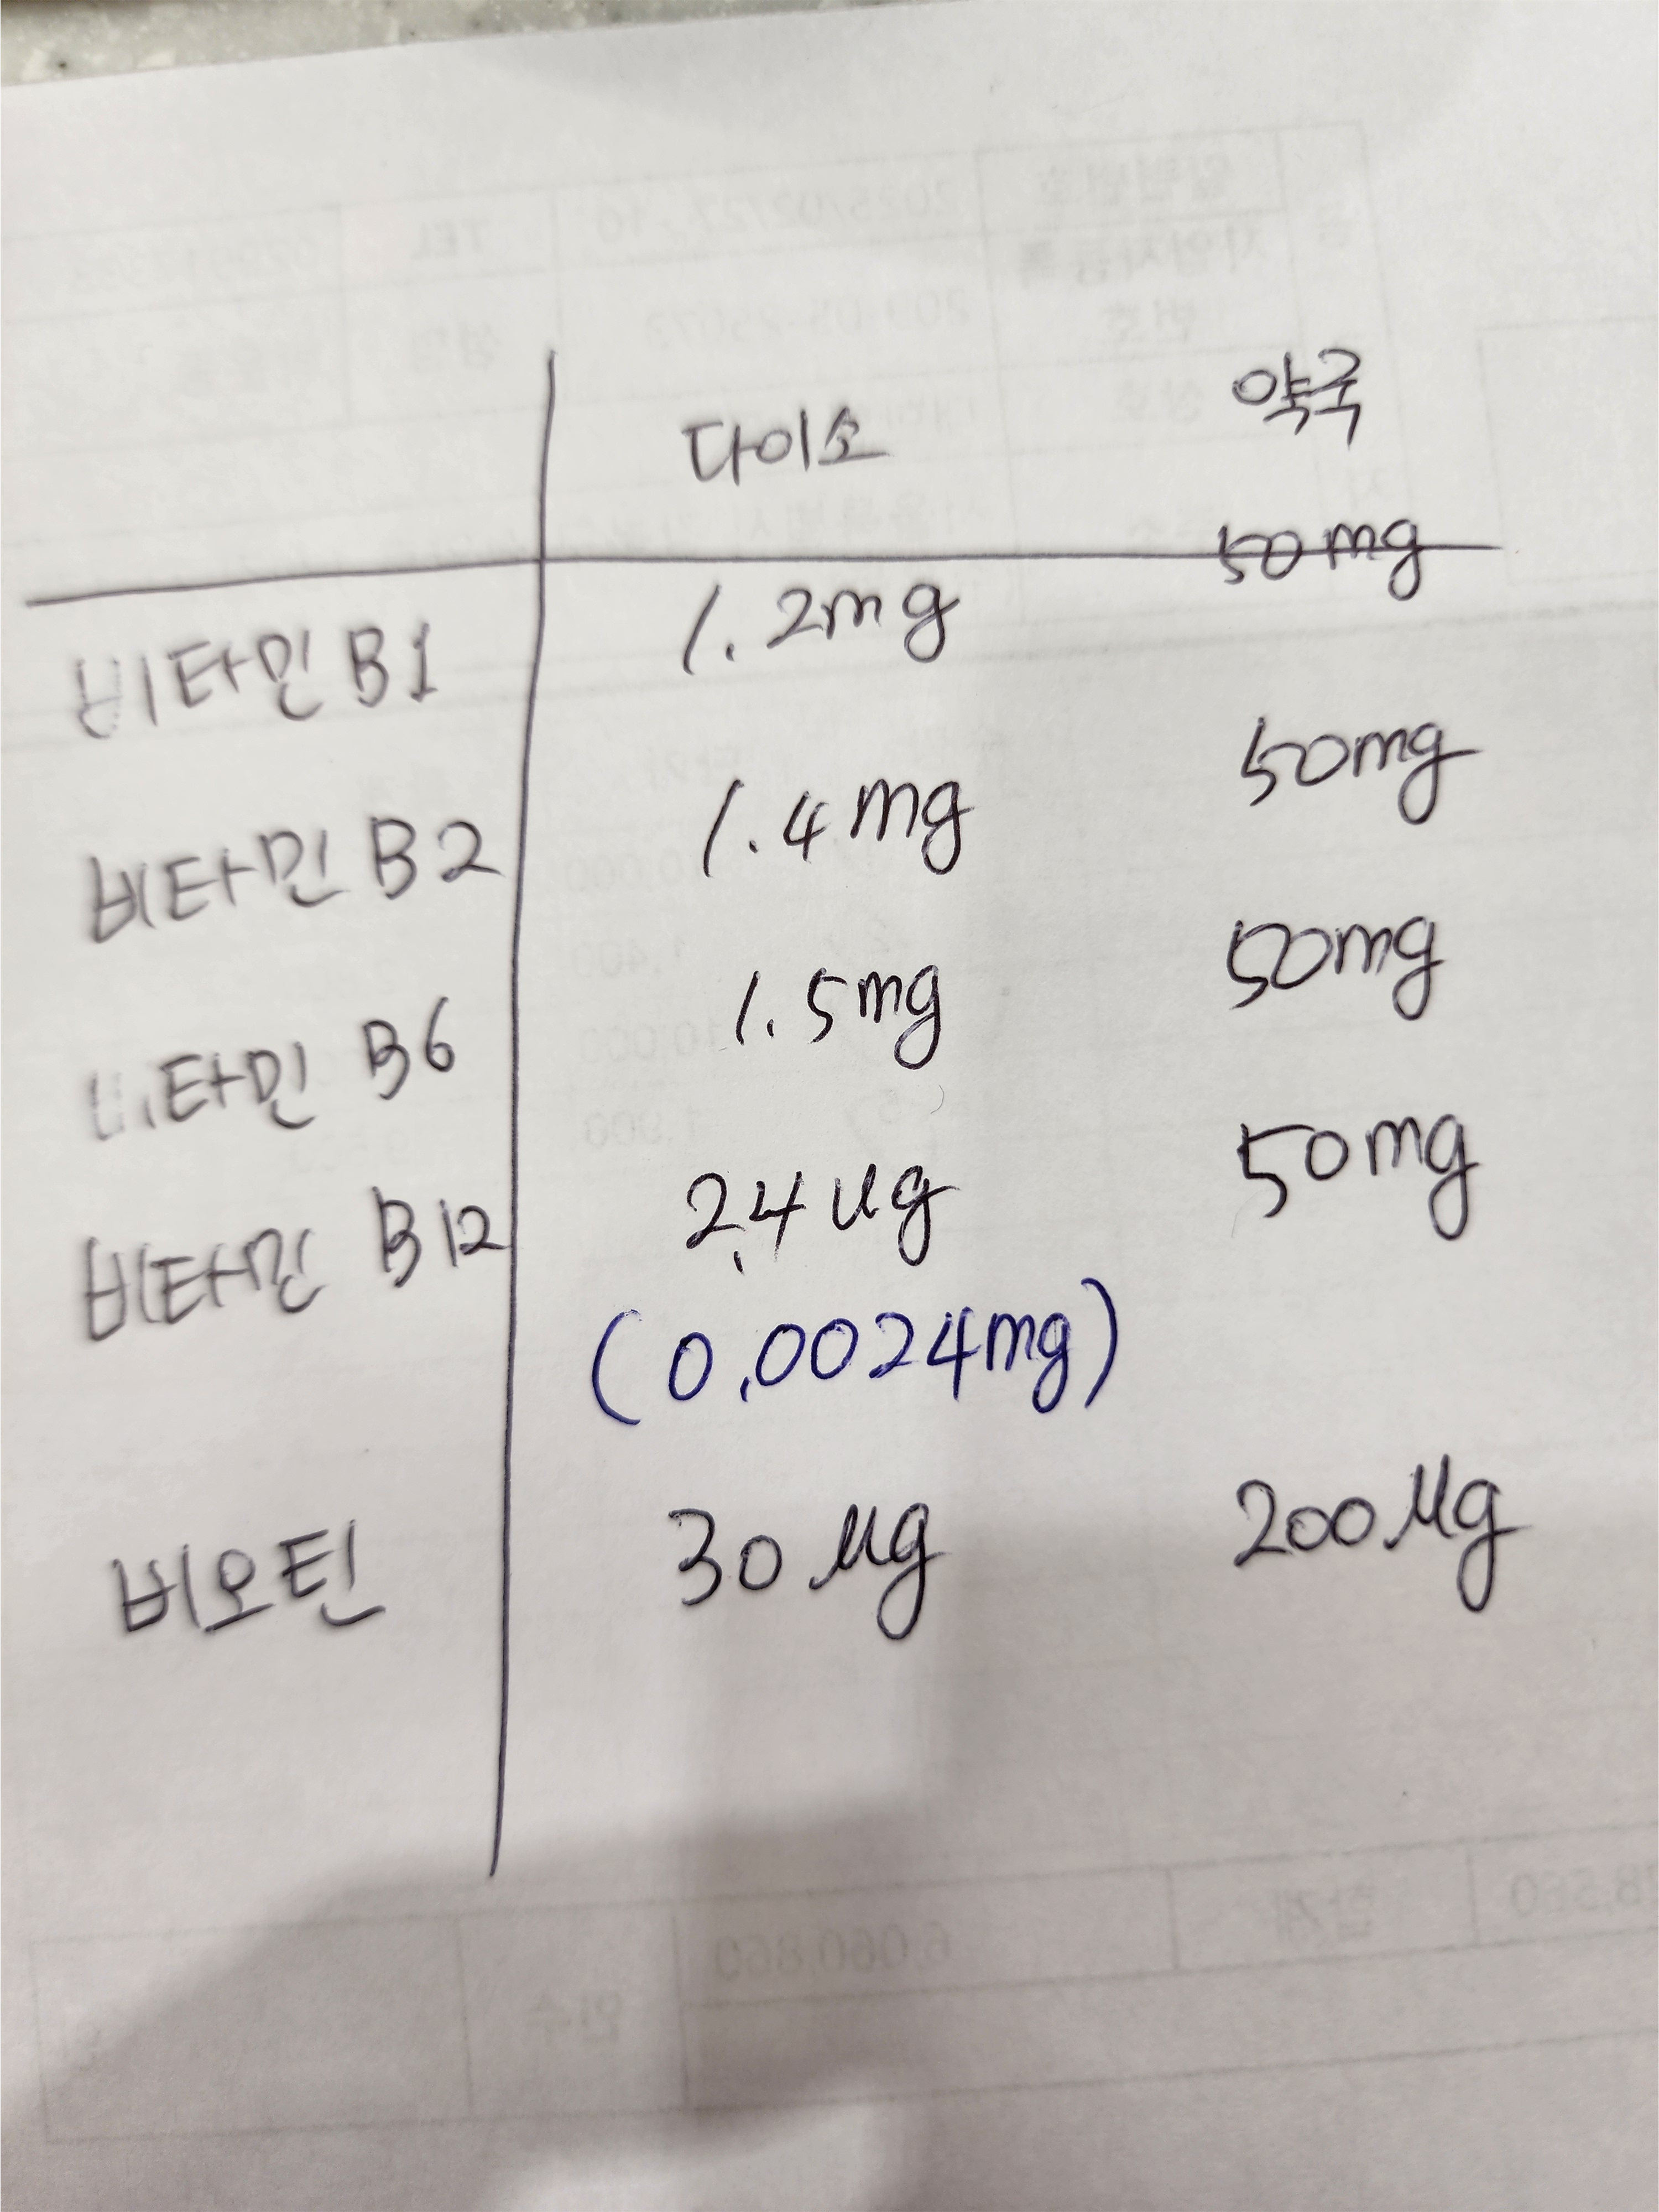 다이소 약국
비타민 B1 1.2mg 50mg
비타민 B2 1.4mg 50mg
비타민 B6 1.5mg 50mg
비타민 B12 2.4 μg 50mg
(0.0024mg)
비오틴 30 μg 200 μg